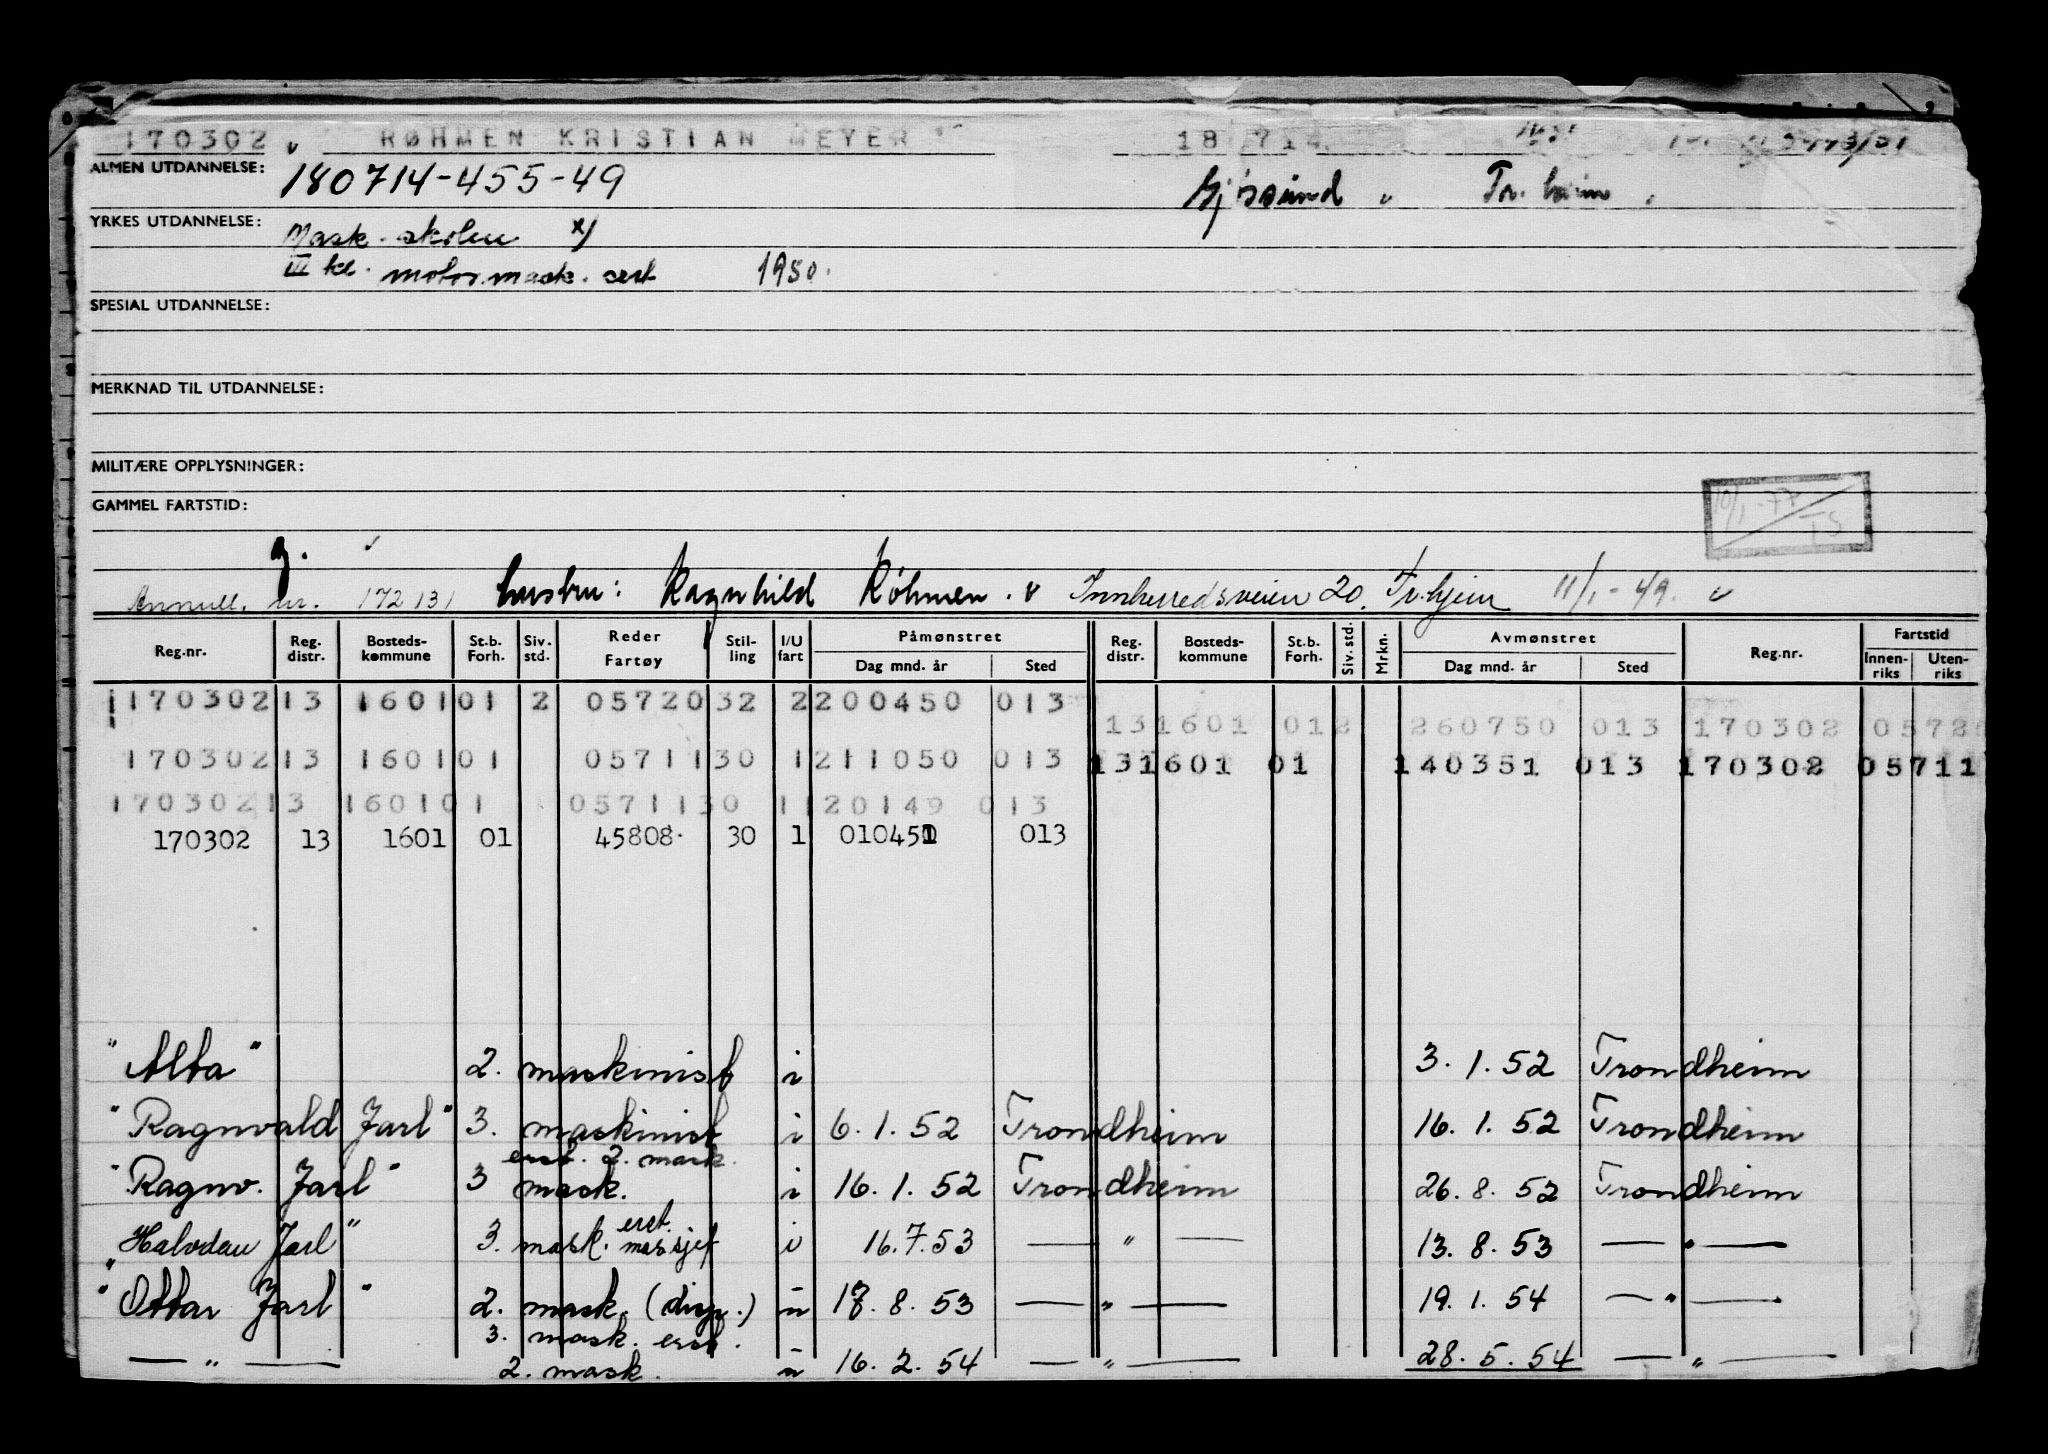 170302 RØHMEN KRISTIAN MEYER 18 714
ALMEN UTDANNELSE: 180714-455-49 Tr.heim
YRKES UTDANNELSE: Mask. skolen x)
III kl. motormask. sert 1950.
SPESIAL UTDANNELSE:
MERKNAD TIL UTDANNELSE:
MILITÆRE OPPLYSNINGER:
GAMMEL FARTSTID:
10/1-77 TS
g.
Annull. nr. 172131 hustru: Ragnhild Røhmen. Innherredsveien 20, Tr.hjem 11/1-49.
Reg.nr. Reg. distr. Bosteds-kommune St.b. Forh. Siv. std. Reder Fartøy Stil-ling I/U fart Påmønstret Dag mnd. år Sted Reg. distr. Bosteds-kommune St.b. Forh. Siv. std. Mrkn. Avmønstret Dag mnd. år Sted Reg.nr. Fartstid Innen-riks Uten-riks
170302 13 1601 01 2 05720 32 2 200450 013
13 1601 01 2 260750 013 170302 0572
170302 13 1601 01 05711 30 1 211050 013 13 1601 01 140351 013 170302 05711
170302 13 1601 01 05711 30 1 120149 013
170302 13 1601 01 45808. 30 1 010451 013
"Alta" 2. maskinist i 3. 1. 52 Trondheim
"Ragnvald Jarl" 3. maskinist i 6. 1. 52 Trondheim 16. 1. 52 Trondheim
erst. 2. mask.
"Ragnv. Jarl" 3 mask. i 16. 1. 52 Trondheim 26. 8. 52 Trondheim
"Halvdan Jarl" 3. mask. erst. massjef i 16. 7. 53 — " — 13. 8. 53 — " —
"Ottar Jarl" 2. mask. (disp.) u 18. 8. 53 — " — 19. 1. 54 — " —
3. mask. erst.
— " — 2. mask. u 16. 2. 54 — " — 28. 5. 54 — " —